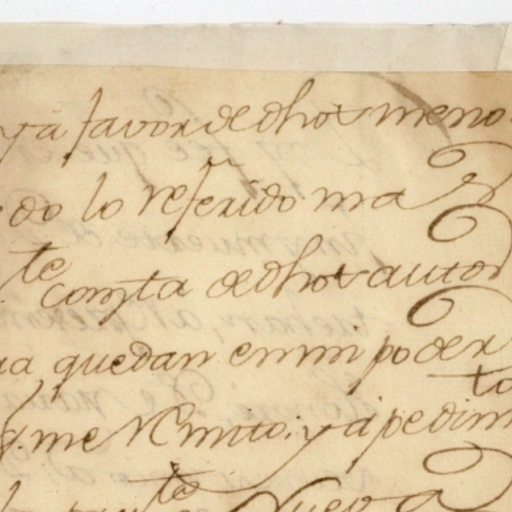 y a favor de dhos meno
do lo referido mas
te consta de dhos autos
quedan en mi poder
me remito; y a pedimto
ta nueva